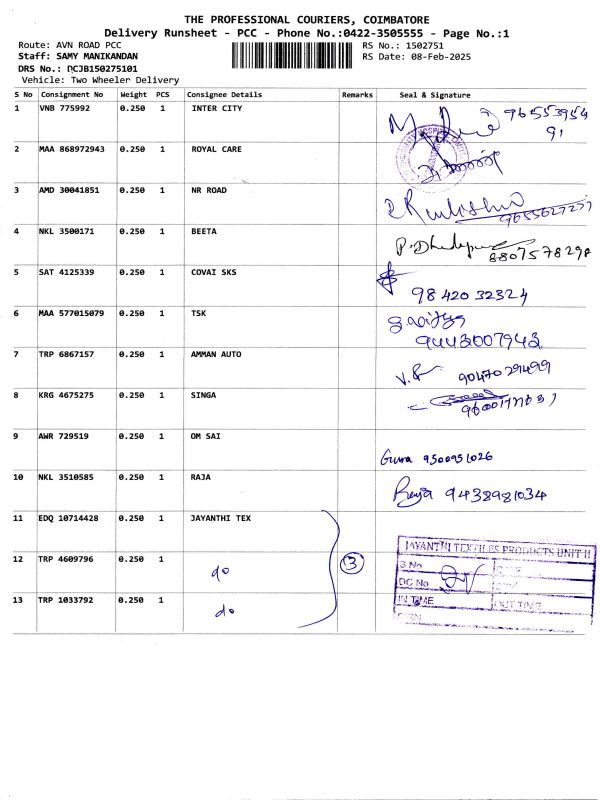 THE PROFESSIONAL COURIERS, COIMBATORE
Delivery Runsheet - PCC - Phone No.:0422-3505555 - Page No.:1
Route: AVN ROAD PCC RS No.: 1502751
Staff: SAMY MANIKANDAN RS Date: 08-Feb-2025
DRS No.: DCJB150275101
Vehicle: Two Wheeler Delivery
S No Consignment No Weight PCS Consignee Details Remarks Seal & Signature
1 VNB 775992 0.250 1 INTER CITY
2 MAA 868972943 0.250 1 ROYAL CARE
3 AMD 30041851 0.250 1 NR ROAD
4 NKL 3500171 0.250 1 BEETA 8807578298
5 SAT 4125339 0.250 1 COVAI SKS
9842032324
6 MAA 577015079 0.250 1 TSK
9443007943
7 TRP 6867157 0.250 1 AMMAN AUTO
9047029499
8 KRG 4675275 0.250 1 SINGA
9 AWR 729519 0.250 1 OM SAI
Guna 9500951026
10 NKL 3510585 0.250 1 RAJA
Raja 9438981034
11 EDQ 10714428 0.250 1 JAYANTHI TEX
JAYANTHI TEXTILES PRODUCTS UNIT-II
12 TRP 4609796 0.250 1 do 3
S.No
DC No
13 TRP 1033792 0.250 1 do
IN TIME OUT TIME
SIGN